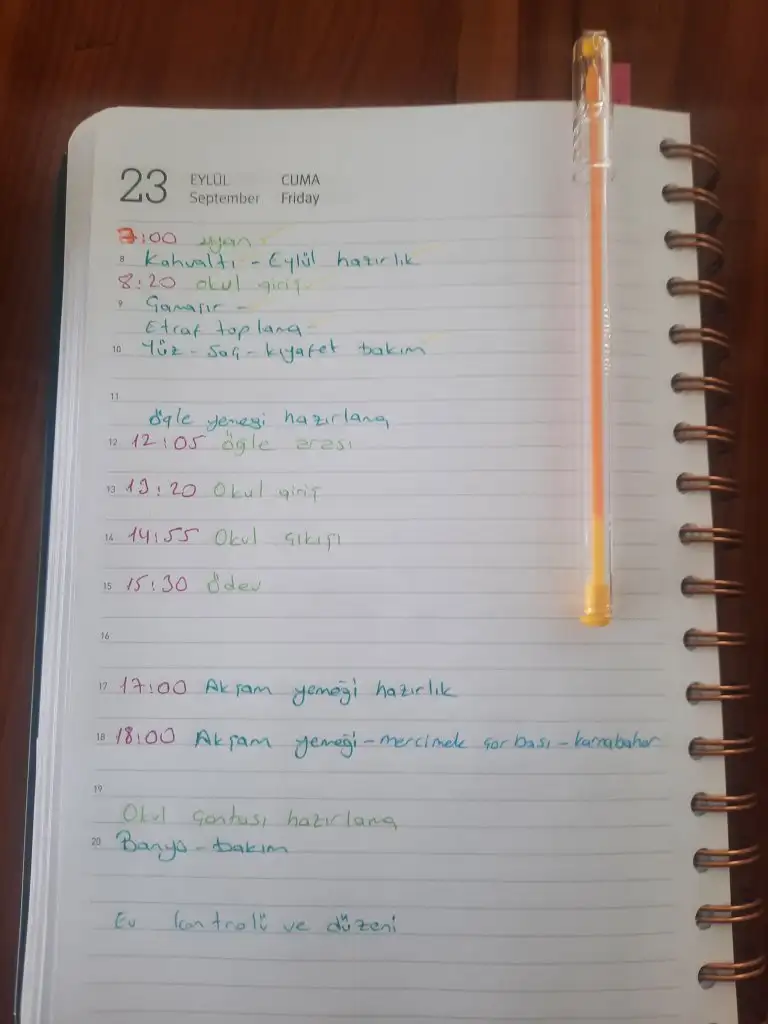 23 EYLÜL CUMA
September Friday
7:00 uyan
8 Kahvaltı - Eylül hazırlık
8:20 okul giriş
9 Çamaşır -
Etraf toplama -
10 Yüz - Saç - kıyafet bakım
11
öğle yemeği hazırlama
12 12:05 öğle arası
13 13:20 Okul giriş
14 14:55 Okul çıkışı
15 15:30 ödev
16
17 17:00 Akşam yemeği hazırlık
18 18:00 Akşam yemeği - mercimek çorbası - karnabahar
19
Okul çantası hazırlama
20 Banyo - bakım
Ev kontrolü ve düzeni